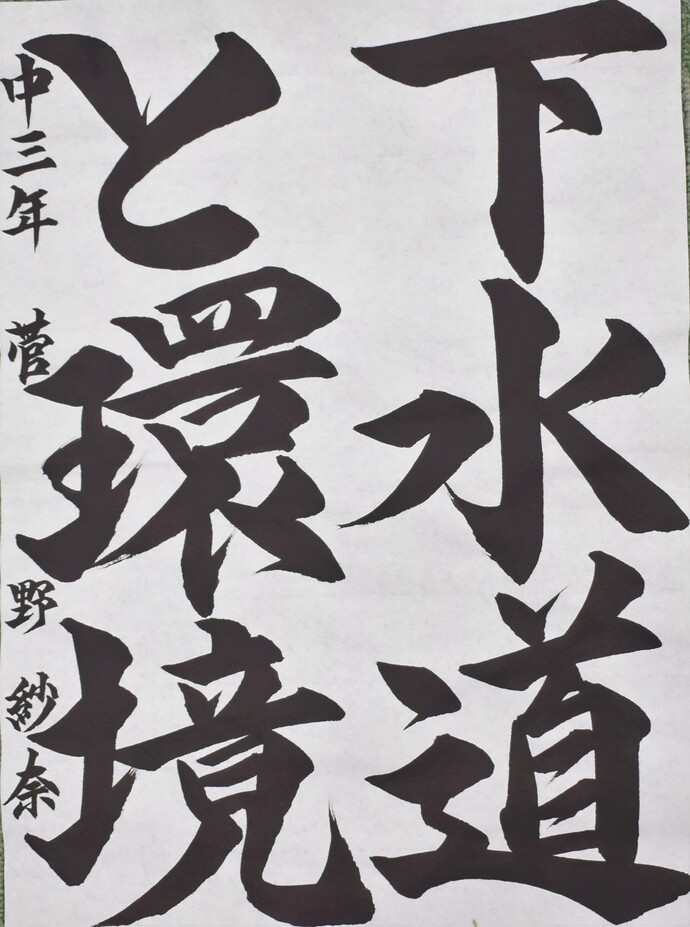 下水道
と環境
中三年 菅野紗奈